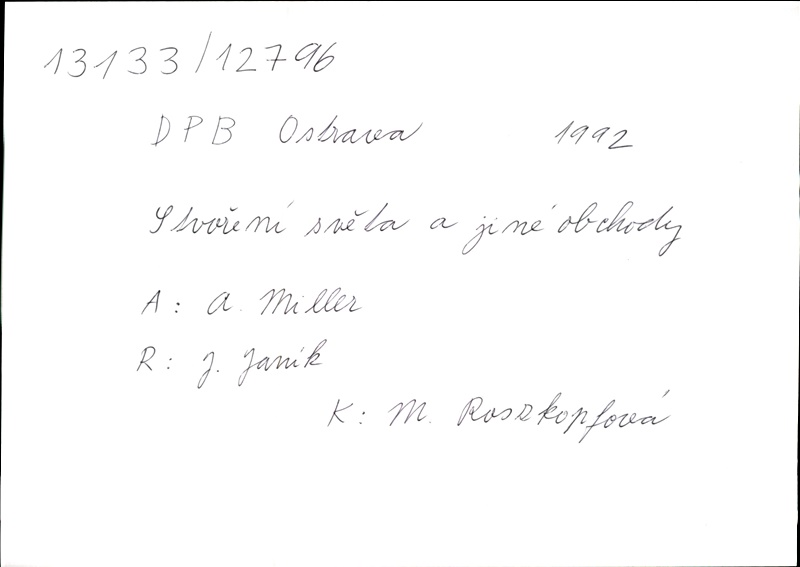 13133/12796
DPB Ostrava 1992
Stvoření světa a jiné obchody
A: A. Miller
R: J. Janík
K: M. Roszkopfová